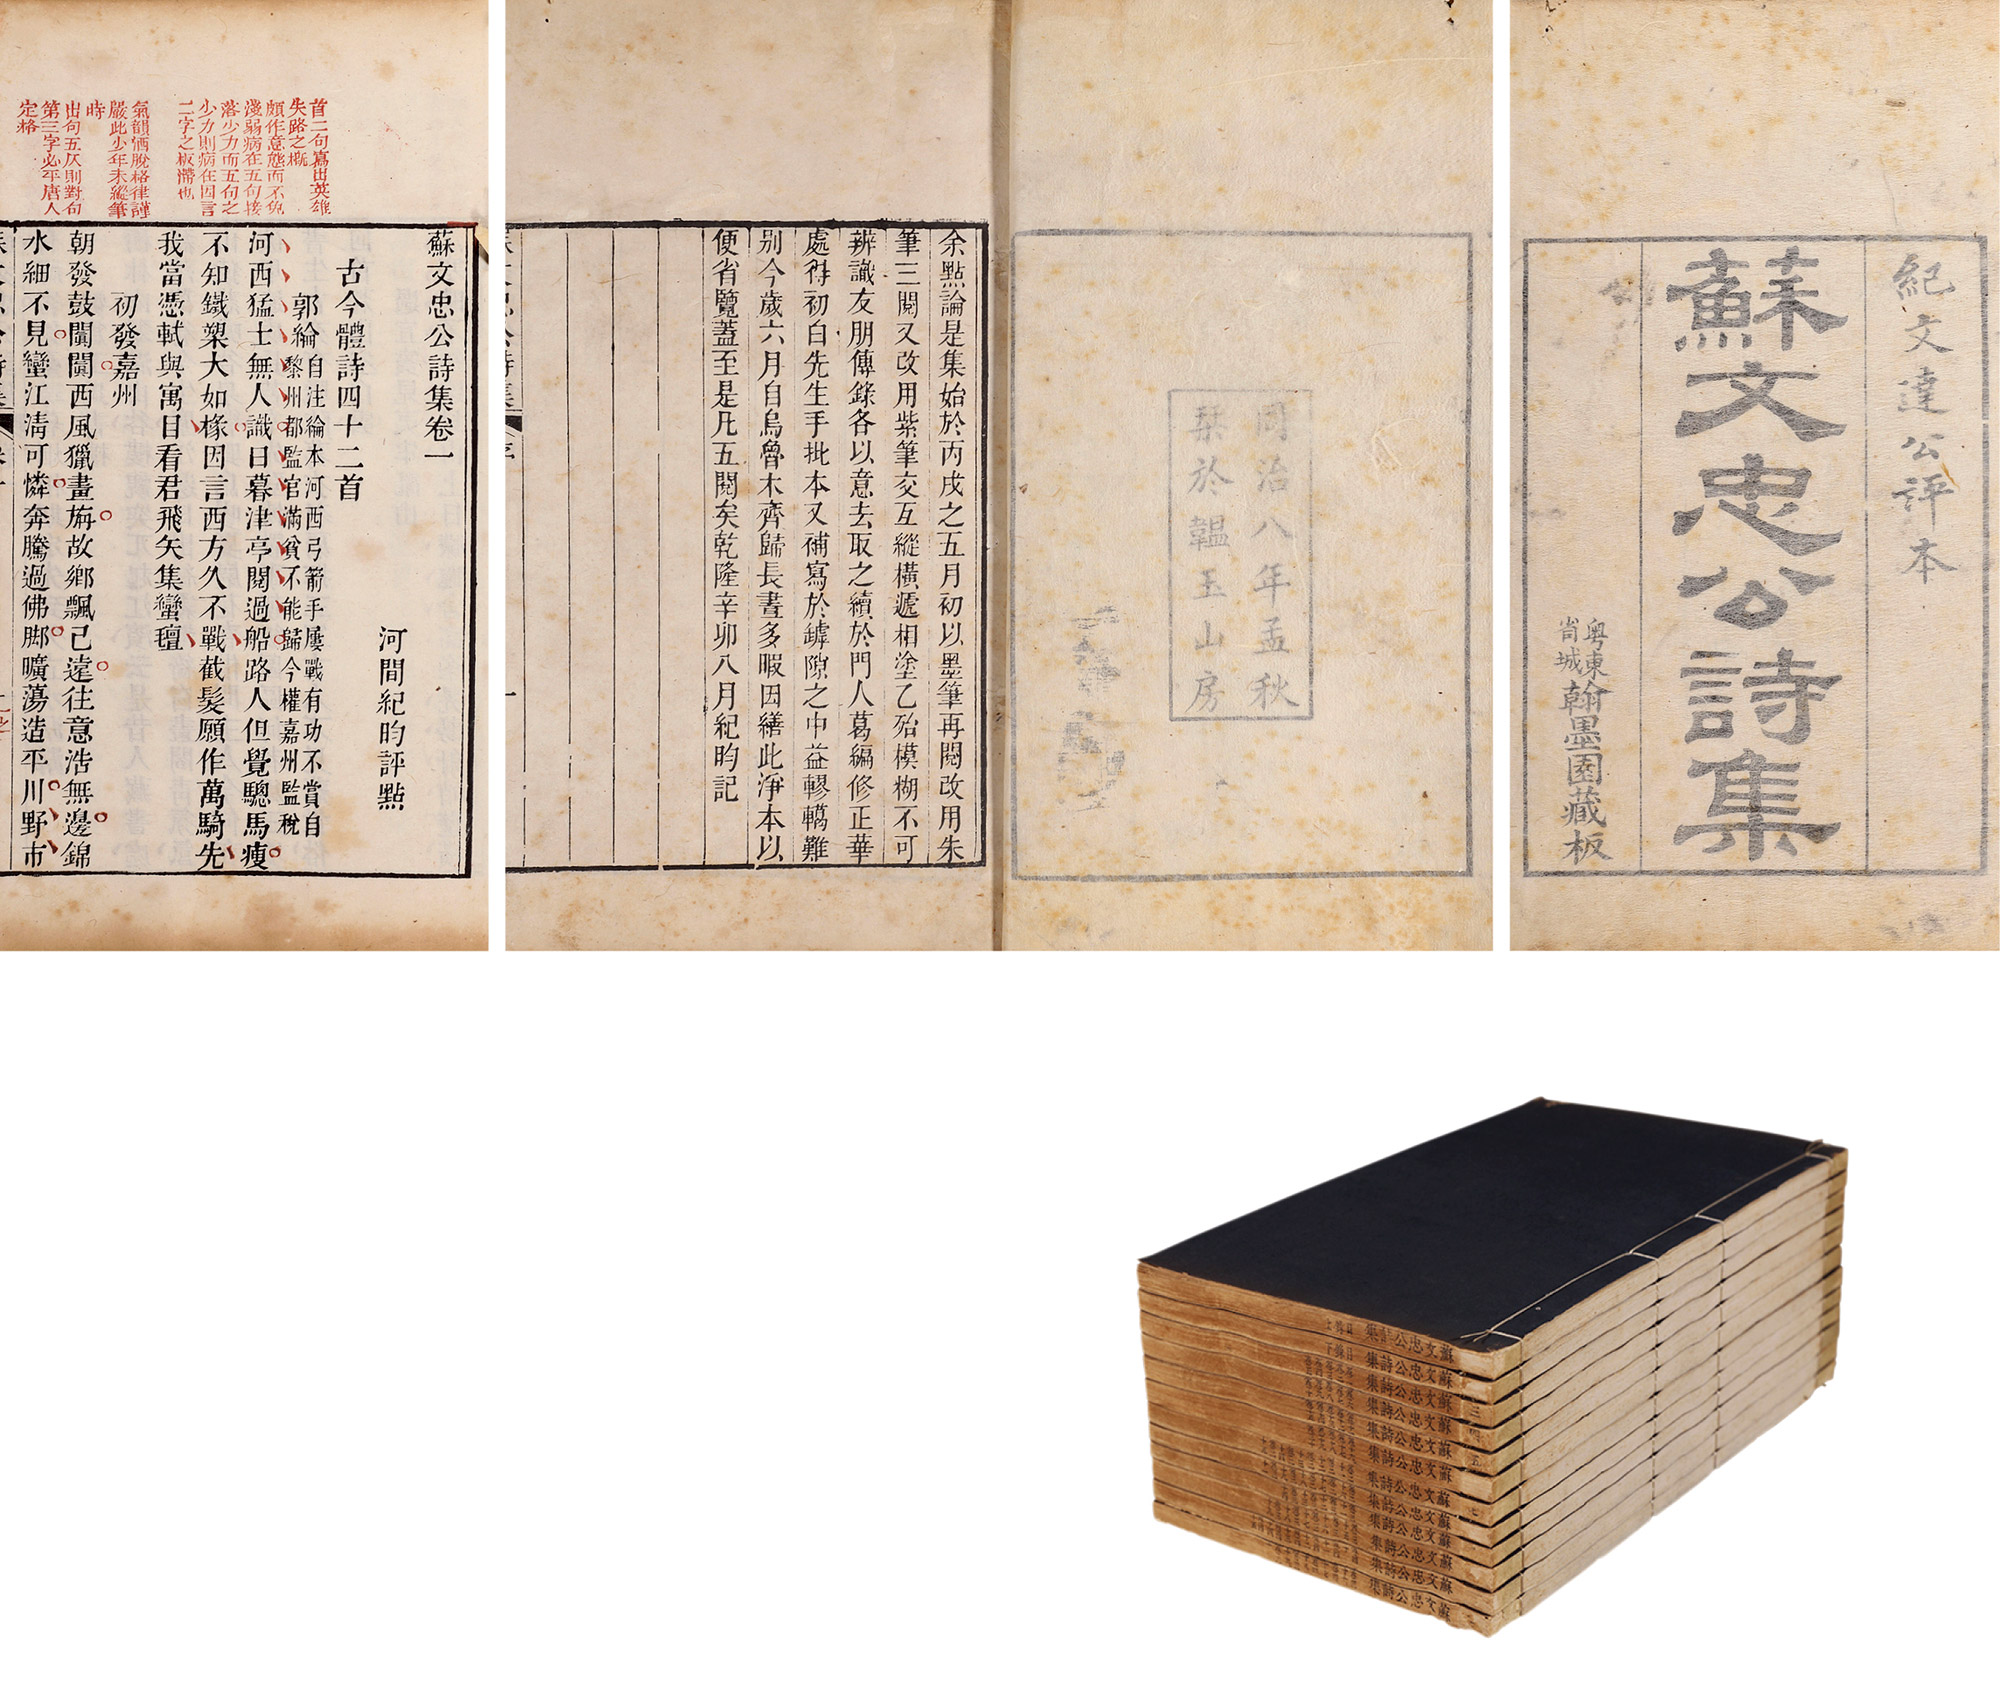 紀文達公評本
蘇文忠公詩集
粵東
省城
翰墨園藏板
同治八年孟秋
栞於韞玉山房
余點論是集始於丙戌之五月初以墨筆再閱改用朱
筆三閱又改用紫筆交互縱橫遞相塗乙殆模糊不可
辨識友朋傳錄各以意去取之續於門人葛編修正華
處得初白先生手批本又補寫於罅隙之中益轇轕難
別今歲六月自烏魯木齊歸長晝多暇因繕此淨本以
便省覽蓋至是凡五閱矣乾隆辛卯八月紀昀記
首二句寫出英雄
失路之槪
頗作意態而不免
淺弱病在五句接
落少力而五句之
少力則病在因言
二字之板滯也
氣韻洒脫格律謹
嚴此少年未縱筆
時
出句五仄則對句
第三字必平唐人
定格
蘇文忠公詩集卷一
河間紀昀評點
古今體詩四十二首
郭綸
自注綸本河西弓箭手屢戰有功不賞自
黎州都監官滿貧不能歸今權嘉州監稅
河西猛士無人識日暮津亭閱過船路人但覺驄馬瘦
不知鐵槊大如椽因言西方久不戰截髮願作萬騎先
我當憑軾與寓目看君飛矢集蠻氈
初發嘉州
朝發鼓闐闐西風獵畫旃故鄉飄已遠往意浩無邊錦
水細不見蠻江清可憐奔騰過佛腳曠蕩造平川野市
蘇文忠公詩集 目錄上
蘇文忠公詩集 目錄下
蘇文忠公詩集 三
蘇文忠公詩集 四
蘇文忠公詩集 五
蘇文忠公詩集
蘇文忠公詩集 七
蘇文忠公詩集
蘇文忠公詩集
蘇文忠公詩集